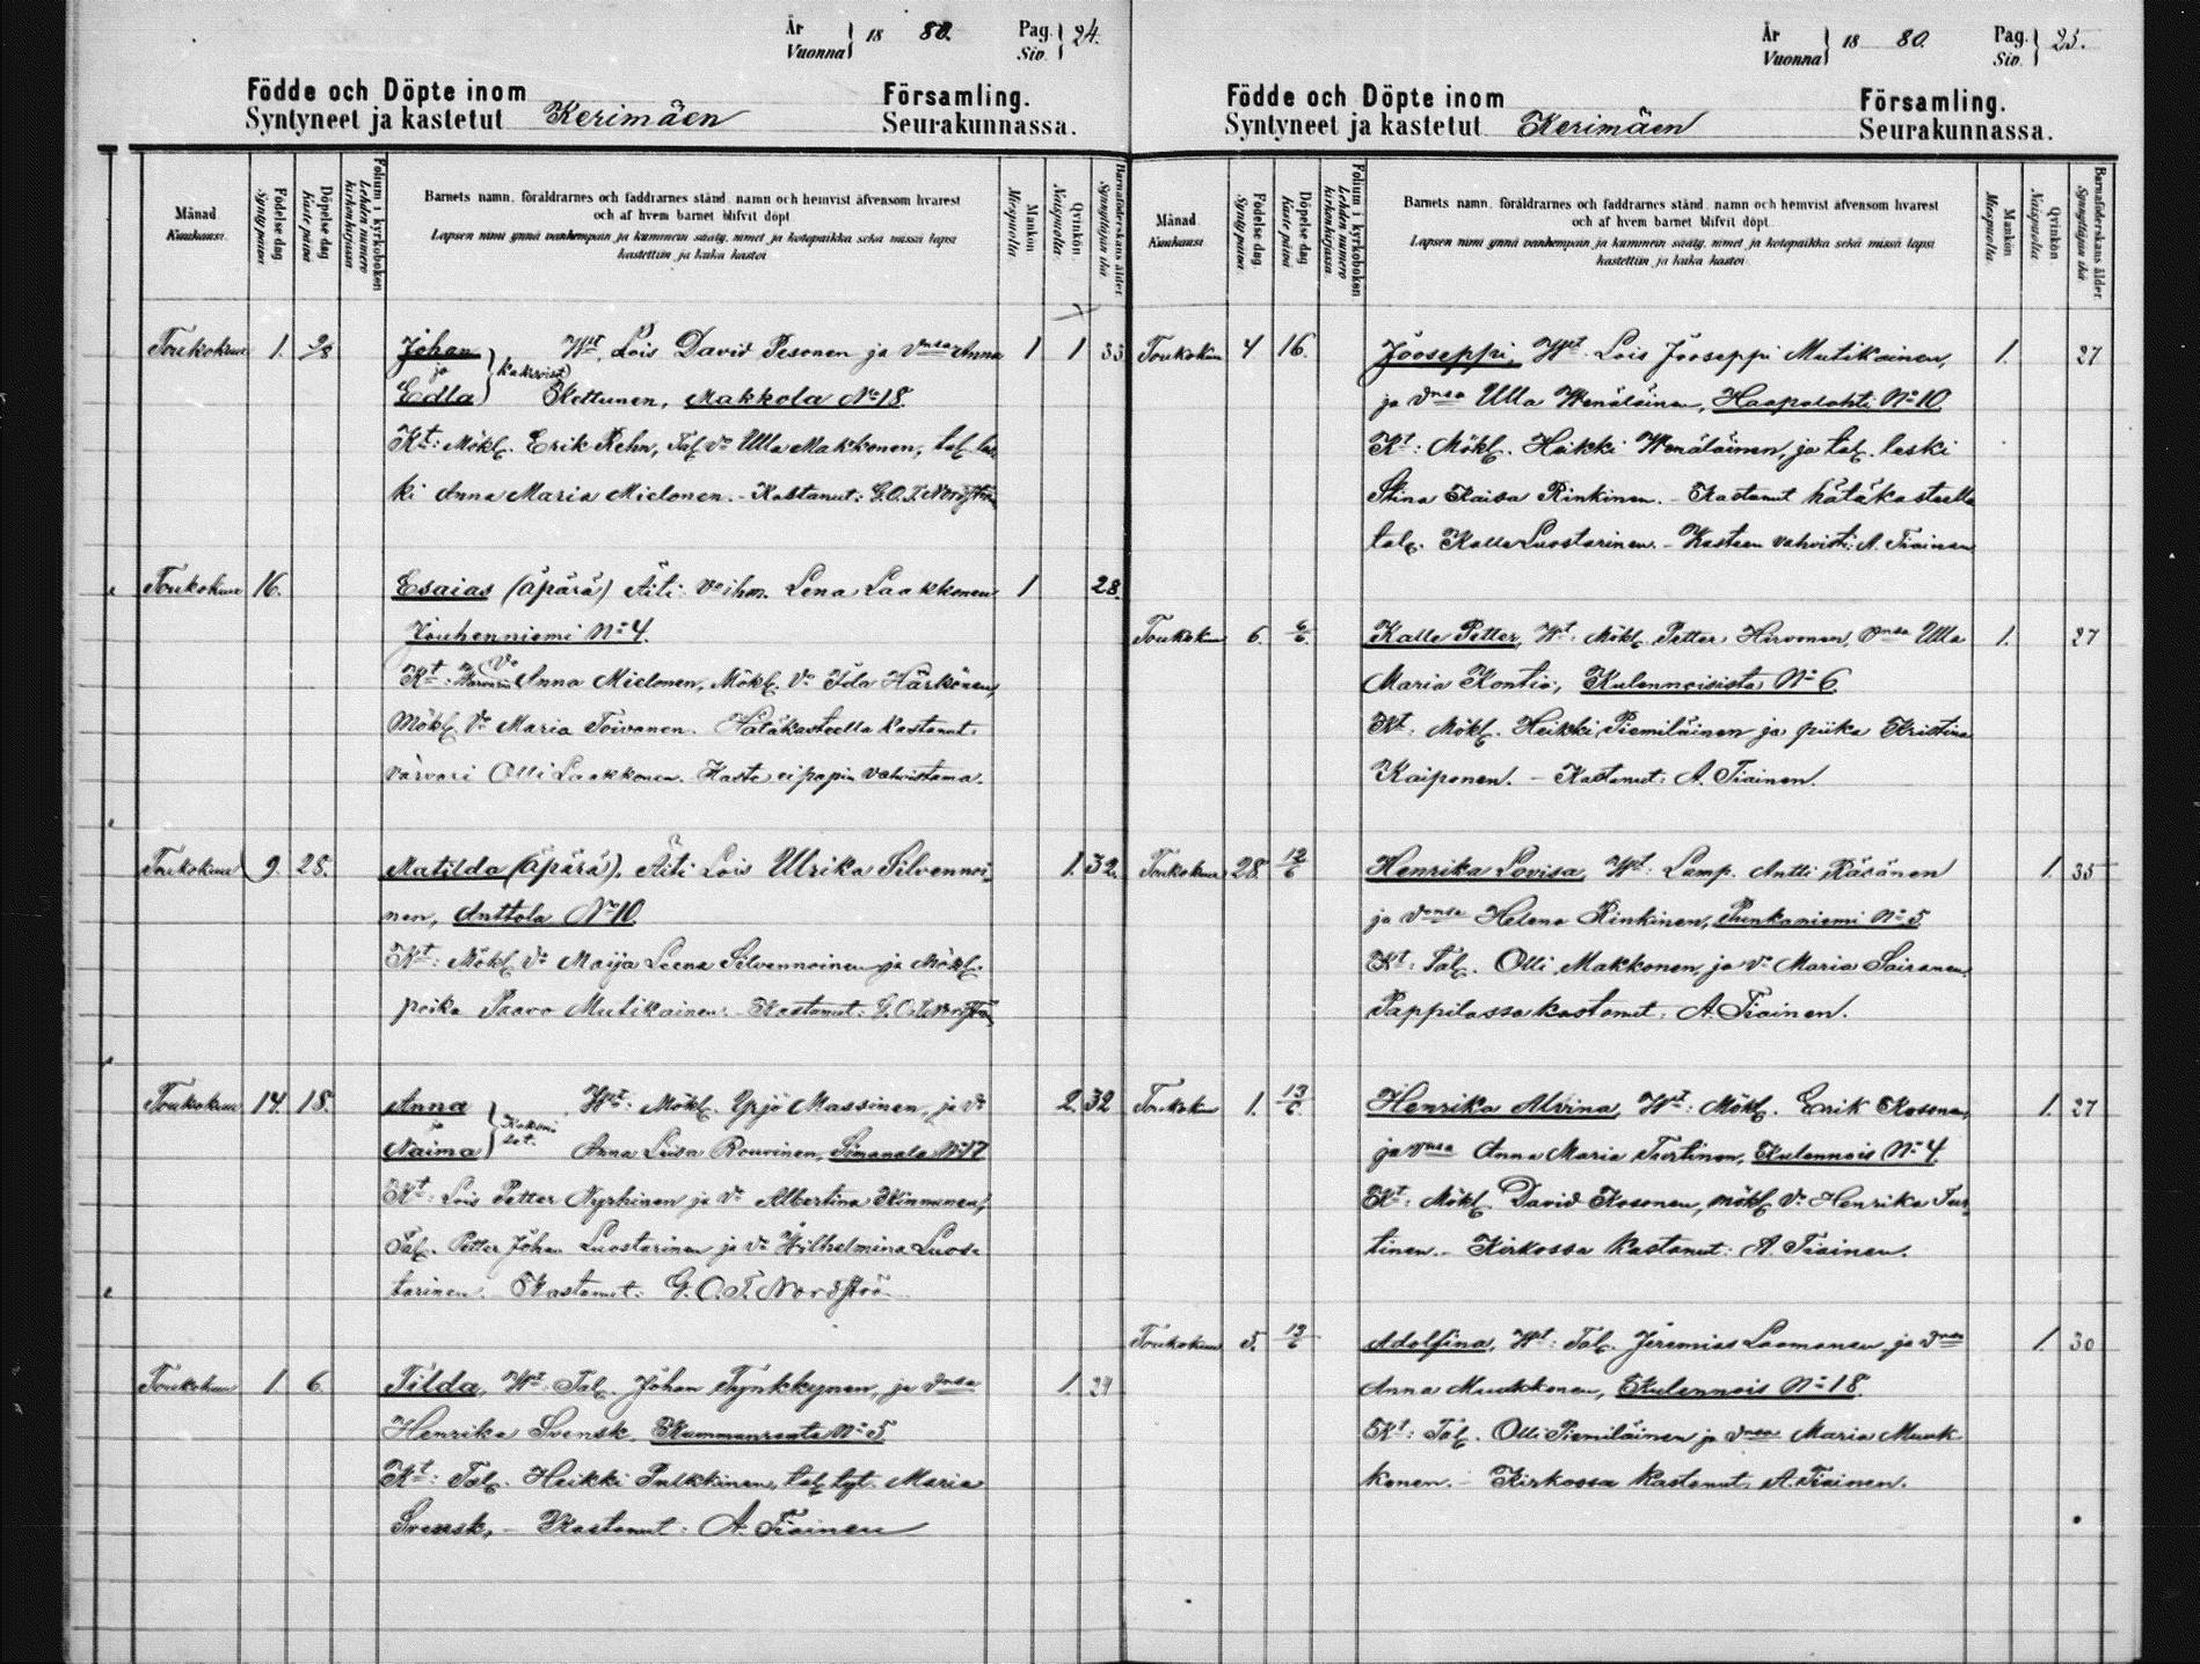 År
Vuonna } 18 80. Pag.
Siv. } 24.
Födde och Döpte inom Församling.
Syntyneet ja kastetut Kerimäen Seurakunnassa.
Månad
Kuukausi.
Födelse dag
Syntypäivä
Döpelse dag
Kaste päivä
Folium i kyrkoboken
Lehden numero kirkonkirjassa
Barnets namn, föräldrarnes och faddrarnes stånd, namn och hemvist äfvensom hvarest
och af hvem barnet blifvit döpt.
Lapsen nimi ynnä vanhempain ja kummein sääty, nimet ja kotopaikka sekä missä lapsi
kastettiin ja kuka kastoi
Mankön
Miespuolta.
Qvinkön
Naispuolta.
Barnaföderskans ålder
Synnyttäjän ikä
Toukokuu 1. 2/8 Johan Wmt. Lois David Pesonen ja Vnsa Anna 1 1 33
ja } kaksoiset
Edla Kettunen, Makkola No 18.
Kt: Mökl. Erik Rehn, Tal. Vo Ulla Makkonen, tal. les
ki Anna Maria Mielonen. - Kastanut: G.O.T. Nordström
Toukokuu 16. Esaias (äpärä) Äiti Lena Laakkonen 1 28.
Jouhenniemi No 4.
Kt: Vo Anna Mielonen, Mökl. Vo Ida Härkönen,
Mökl. Vo Maria Toivonen. Hätäkasteella kastanut
värvari Olli Laakkonen. Kaste ei papin vahvistama.
Toukokuu 9. 28. Matilda (äpärä). Äiti Lois Ulrika Silvennoi 1. 32.
nen, Anttola No 10.
Kt: Mökl. Vo Maija Leena Silvennoinen ja Mökl.
poika Paavo Mutikainen. - Kastanut: G.O.T. Nordström
Toukokuu 14. 18. Anna Wmt: Mökl. Yrjö Massinen, ja Vo 2. 32
ja } Kaksoiset.
Naima Anna Liisa Rouvinen, Simanala No 17
Kt: Lois Petter Nyrhinen ja Vo Albertina Kinnunen,
Tal. Petter Johan Luostarinen ja Vo Wilhelmina Luos
tarinen. Kastanut: G.O.T. Nordströ
Toukokuu 1. 6. Tilda, Wmt: Tal. Johan Tynkkynen, ja Vnsa 1. 29
Henrika Svensk. Kummunranta No 5
Kt: Tal. Heikki Pulkkinen, tal. tyt. Maria
Svensk, - Kastanut: A. Tiainen
År
Vuonna } 18 80. Pag.
Siv. } 25.
Födde och Döpte inom Församling.
Syntyneet ja kastetut Kerimäen Seurakunnassa.
Månad
Kuukausi
Födelse dag
Syntypäivä.
Döpelse dag
Kaste päivä
Folium i kyrkoboken
Lehden numero kirkonkirjassa
Barnets namn, föräldrarnes och faddrarnes stånd, namn och hemvist äfvensom hvarest
och af hvem barnet blifvit döpt.
Lapsen nimi ynnä vanhempain ja kummein sääty, nimet ja kotopaikka sekä missä lapsi
kastettiin ja kuka kastoi
Mankön
Miespuolta
Qvinkön
Naispuolta
Barnaföderskans ålder
Synnyttäjän ikä
Toukokuu 4 16. Jooseppi, Wmt. Lois Jooseppi Mutikainen, 1. 27
ja Vnsa Ulla Wenäläinen, Haapalahti No 10
Kt: Mökl. Heikki Wenäläinen, ja tal. leski
Stina Kaisa Rinkinen. - Kastanut hätäkasteella
tal. Kalle Luostarinen. - Kasteen vahvisti: A. Tiainen
Toukokuu 6. 6/6. Kalle Petter, Wt: Mökl. Petter Hirvonen, Vnsa Ulla 1. 27
Maria Kontio, Kulennoisista No 6
Kt. Mökl. Heikki Piemiläinen ja piika Kristina
Kaiponen. - Kastanut: A. Tiainen.
Toukokuu 28. 12/6 Henrika Lovisa, Wmt: Lamp. Antti Räsänen 1. 35
ja Vonsa Helena Rinkinen, Punkaniemi No 5
Kt: Tal. Olli Makkonen, ja Vo Maria Sairanen.
Pappilassa kastanut: A. Tiainen.
Toukokuu 1. 13/6 Henrika Alvina, Wmt: Mökl. Erik Kosonen, 1. 27
ja Vnsa Anna Maria Turtinen, Kulennois No 4.
Kt: Mökl. David Kosonen, mökl. Vo Henrika Tur
tinen. - Kirkossa kastanut: A. Tiainen.
Toukokuu 5. 13/6 Adolfina, Wt: Tal. Jeremias Laamanen, ja Vnsa 1. 30
Anna Muukkonen, Kulennois No 18.
Kt: Tal. Olli Piemiläinen ja Vnsa Maria Muuk
konen. - Kirkossa kastanut, A. Tiainen.